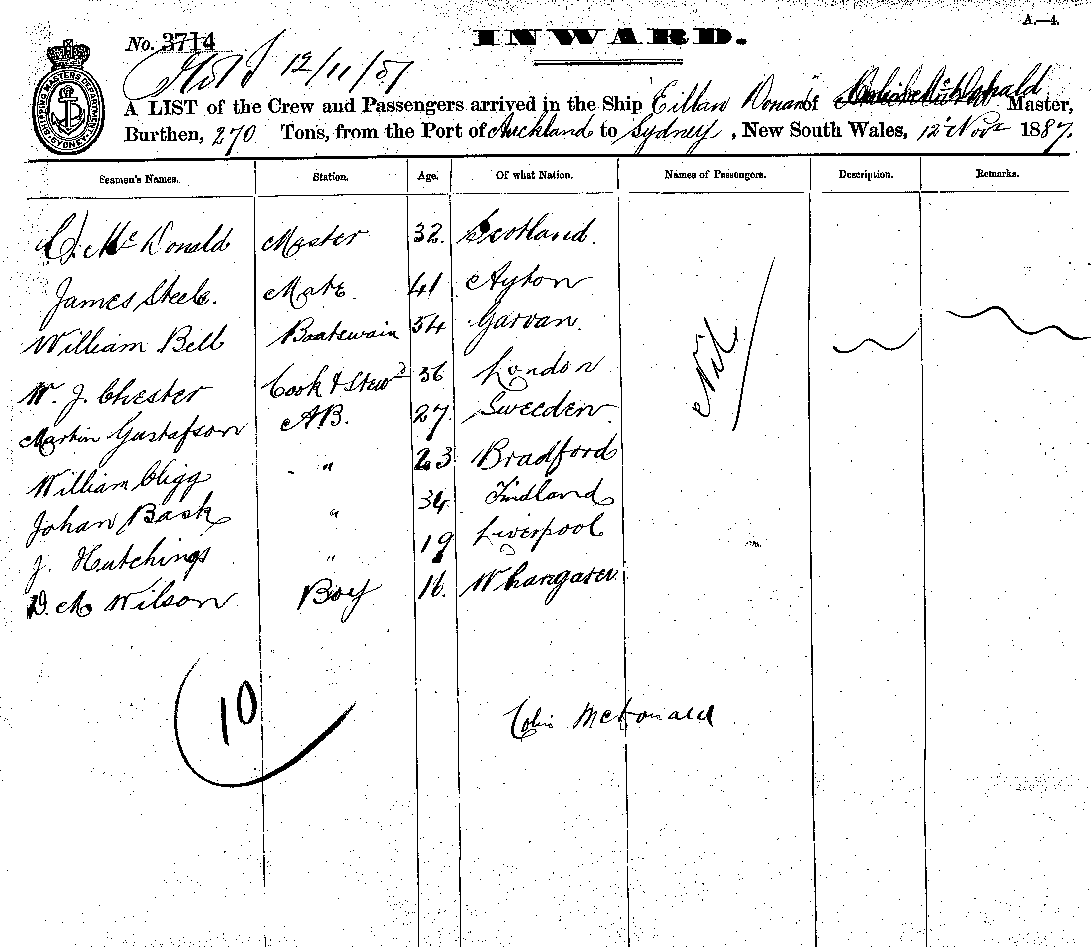 A.—4.
INWARD.
No. 3714
12/11/87
A LIST of the Crew and Passengers arrived in the Ship Eillan Donan of McDonald Master,
Burthen, 270 Tons, from the Port of Auckland to Sydney, New South Wales, 12 Novr 1887.
Seamen's Names. Station. Age. Of what Nation. Names of Passengers. Description. Remarks.
C. Mc Donald Master 32. Scotland.
James Steele. Mate. 41 Ayton
William Bell Boatswain 54 Garvan.
W. J. Chester Cook & Stewd 36 London
Martin Gustafson AB. 27 Sweeden
William Cligg " 23 Bradford
Johan Bask " 34 Findland
J. Hutchings " 19 Liverpool
D. M Wilson Boy 16. Whangarei
Nil
10
Colin McDonald
SHIPPING MASTERS DEPARTMENT SYDNEY